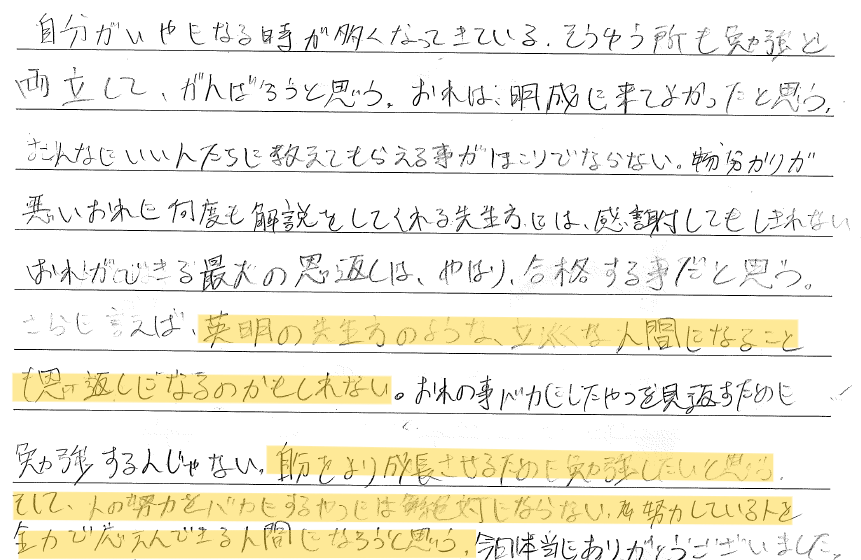 自分がいやになる時が多くなってきている。そうゆう所も勉強と
両立して、がんばろうと思う。おれは、明成に来てよかったと思う。
こんなにいい人たちに教えてもらえる事がほこりでならない。物分かりが
悪いおれに何度も解説をしてくれる先生方には、感謝してもしきれない
おれができる最大の恩返しは、やはり、合格する事だと思う。
さらに言えば、英明の先生方のような、立派な人間になること
も恩返しになるのかもしれない。おれの事バカにしたやつを見返すために
勉強するんじゃない。自分をより成長させるために勉強したいと思う。
そして、人の努力をバカにするやつには絶対にならない。努力している人を
全力で応えんできる人間になろうと思う。今日本当にありがとうございました。